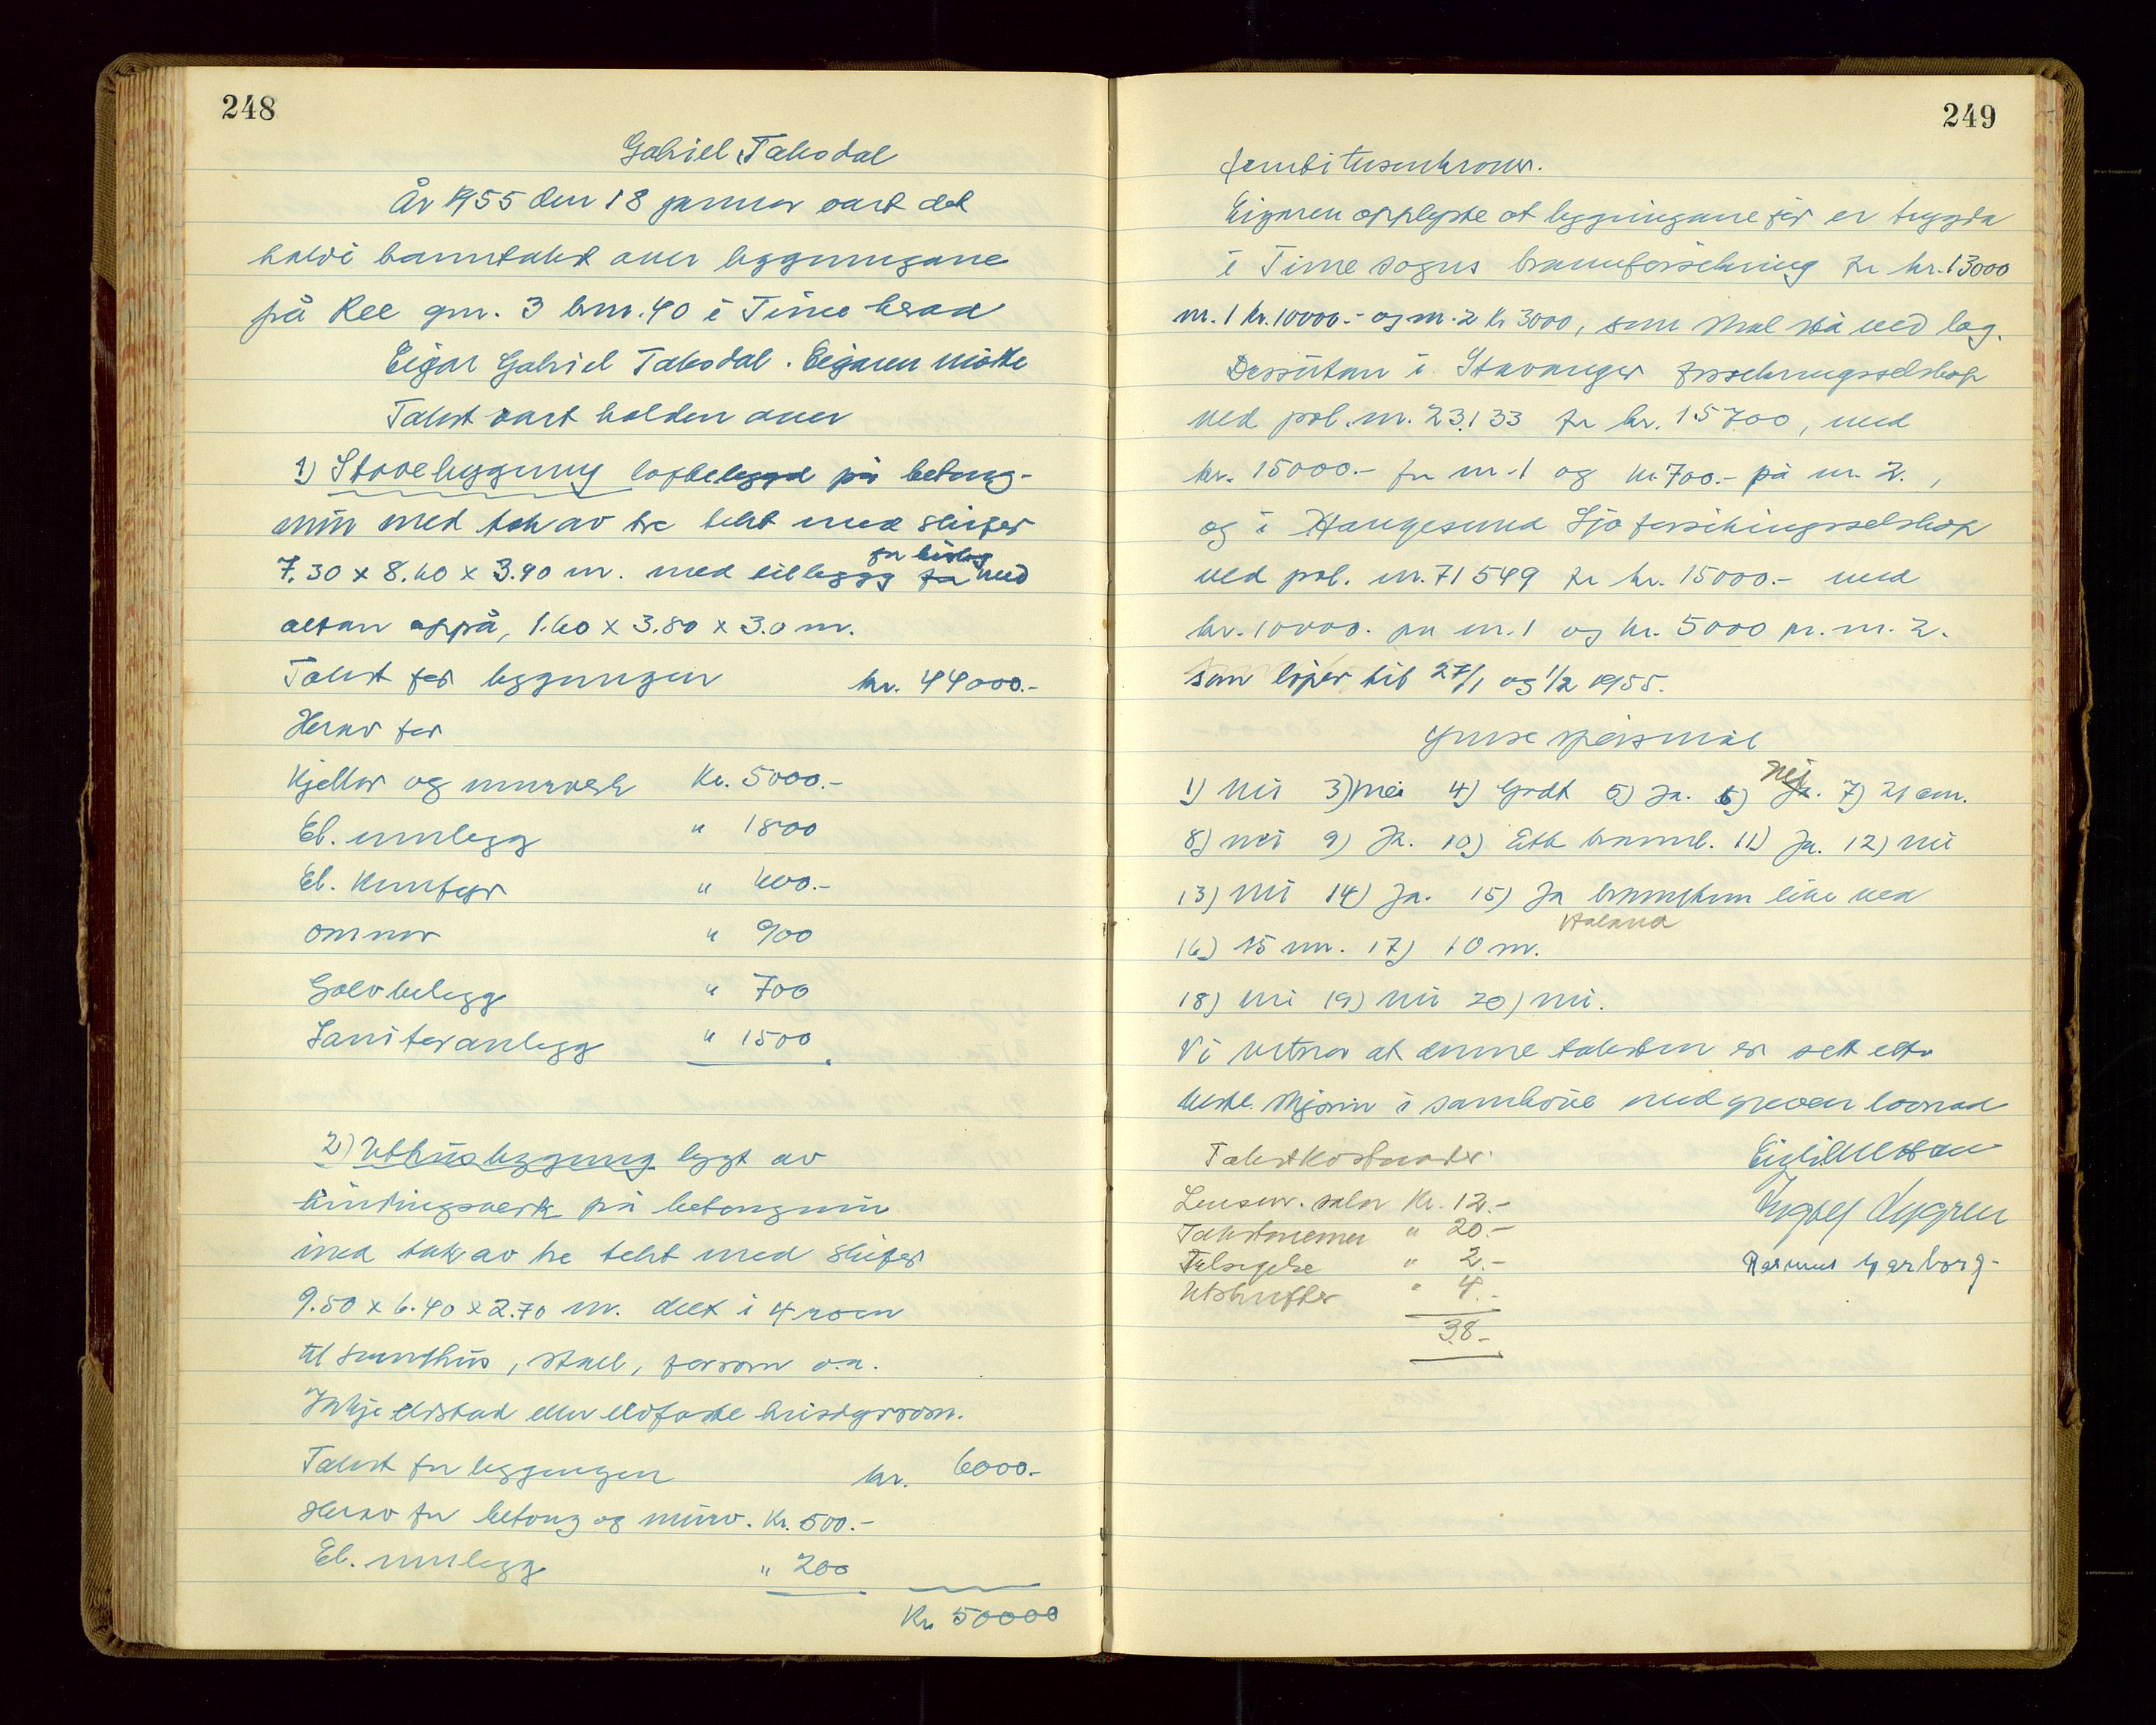 248
Gabriel Taksdal
År 1955 den 18 januar vart det
haldi branntakst over bygningane
på Ree gnr. 3 bnr. 40 i Time herad
Eigar Gabriel Taksdal. Eigaren møtte
Takst vart halden over
1) Stovebygning lafbelagd på betong-
mur med tak av tre tekt med skifer
7.30 x 8.60 x 3.90 m. med tillegg for bislag med
altan oppå, 1.60 x 3.80 x 3.0 m.
Takst for bygningen kr. 44000.-
Herav for
Kjellar og murverk Kr. 5000.-
El. innlegg " 1800
El. komfyr " 600.-
omnar " 900
Golvbelegg " 700
Saniteranlegg " 1500
2) Uthusbygning bygt av
bindingsverk på betongmur
med tak av tre tekt med skifer
9.50 x 6.40 x 2.70 m. delt i 4 rom
til grunnhus, stall, forrom o.a.
Inkje eldstad eller eldfarlle husdyrrom.
Takst for bygningen kr. 6000.-
Herav for betong og murv. Kr. 500.-
El. innlegg " 200
Kr. 50000
249
femti tusenkroner.
Eigaren opplyste at bygningane før er trygda
i Time sogns brannforsikring for kr. 13000
nr. 1 kr. 10000.- og nr. 2 Kr 3000, som skal stå ved lag.
Dessutan i Stavanger forsikringsselskap
ved pol. nr. 23133 for kr. 15700, med
kr. 15000.- for nr. 1 og kr. 700.- på nr. 2.,
og i Haugesund Sjøforsikringsselskap
ved pol. nr. 71549 for kr. 15000.- med
kr. 10000. på nr. 1 og kr. 5000 på nr. 2.
som løper til 27/1 og 1/2 1955.
Ymse spørsmål
1) Nei 3) nei 4) Godt 5) Ja. 6) Nei 7) 21 cm.
8) nei 9) Ja. 10) Ett brannb. 11) Ja. 12) nei
13) nei 14) Ja. 15) Ja brannkum like ved
Håland
16) 15 m. 17) 10 m.
18) nei 19) nei 20) nei.
Vi vitnar at denne taksten er sett etter
beste skjønn i samhøve med greven lovnad
Takstkostnader:
Lensm. salær Kr. 12.-
Takstmennene " 20.-
Tilsigelse " 2.-
Utskrifter " 4.-
38.-
Ingolf Lygren
Rasmus Garborg-